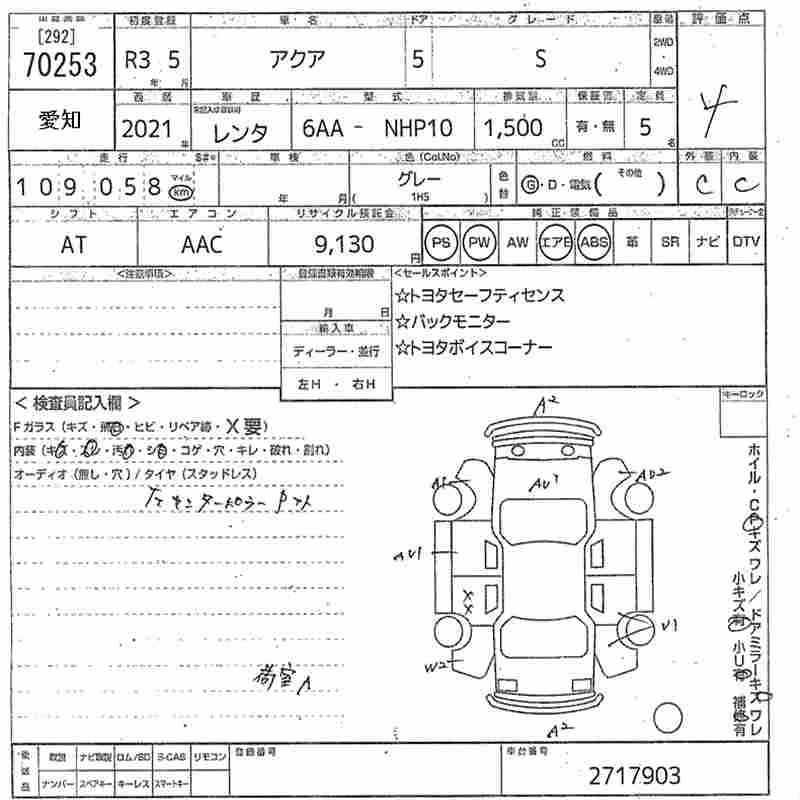 [292] 初度登録 車名 ドア グレード 評価点
70253 R3 5 アクア 5 S 2WD
年 月 4WD
4
愛知 西暦 車歴 型式 排気量 保証書 定員
2021年 レンタ 6AA - NHP10 1,500cc 有・無 5名
走行 車検 色(Cal.No) 燃料 外装 内装
109,058 マイル km 年 月 グレー ( 1H5 ) 色替 G・D・電気( その他 ) C C
シフト エアコン リサイクル預託金 純正装備品
AT AAC 9,130円 PS PW AW エアB ABS 革 SR ナビ DTV
<注意事項> 登録書類有効期限 <セールスポイント>
月 日 ☆トヨタセーフティセンス
輸入車 ☆バックモニター
ディーラー・並行 ☆トヨタボイスコーナー
左H ・ 右H
< 検査員記入欄 > キーロック
Fガラス(キズ・飛石・ヒビ・リペア跡・X要)
内装(キズ・スレ・汚れ・シミ・コゲ・穴・キレ・破れ・割れ)
オーディオ(無し・穴) / タイヤ(スタッドレス)
荷室A
A2
AU1
AD2
AU1
XX
U1
W2
A2
ホイル・CPキズ ワレ / ドアミラーキズ ワレ
小キズ有 小U有 補修有
後送品 取説 ナビ取説 ロム/SD B-CAS リモコン 登録番号 車台番号
ナンバー スペアキー キーレス スマートキー 2717903